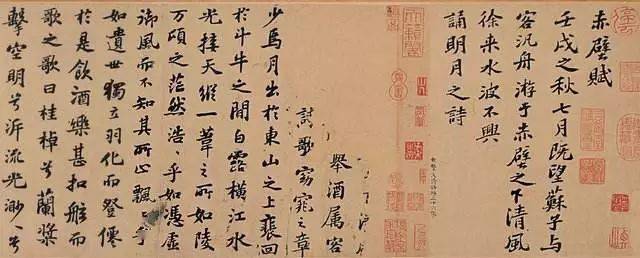 赤壁賦
壬戌之秋七月既望蘇子与
客汎舟游于赤壁之下清風
徐来水波不興
誦明月之詩
舉酒属客
歌窈窕之章
少焉月出於東山之上裵回
於斗牛之間白露橫江水
光接天縱一葦之所如陵
万頃之茫然浩々乎如憑虛
御風而不知其所止飄々乎
如遺世獨立羽化而登僊
於是飲酒樂甚扣舷而
歌之歌曰桂棹兮蘭槳
擊空明兮泝流光渺々兮